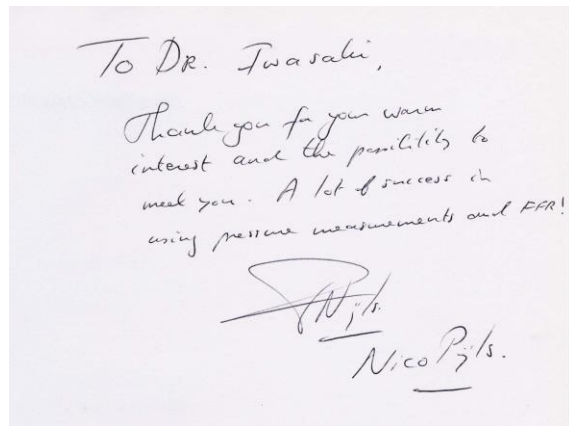 To DR. Iwasaki,
Thank you for your warm
interest and the possibility to
meet you. A lot of success in
using pressure measurements and FFR!
NPijls.
Nico Pijls.